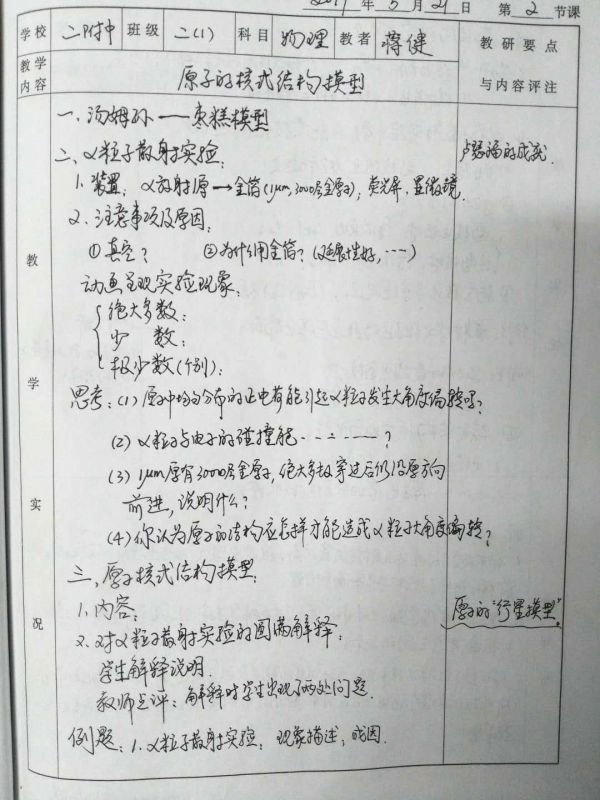 2019年5月21日 第2节课
学校 二附中 班级 二(1) 科目 物理 教者 蒋健 教研要点与内容评注
教学内容 原子的核式结构模型
教学实况
一、汤姆孙——枣糕模型
二、α粒子散射实验:
卢瑟福的成就.
1. 装置: α放射源→金箔(1μm, 3000层金原子), 荧光屏, 显微镜.
2. 注意事项及原因:
①真空? ②为什么用金箔?(延展性好, ……)
动画呈现实验现象:
绝大多数:
少 数:
极少数(个别):
思考: (1) 原子中均匀分布的正电荷能引起α粒子发生大角度偏转吗?
(2) α粒子与电子的碰撞能………?
(3) 1μm厚有3000层金原子, 绝大多数穿过后仍沿原方向
前进, 说明什么?
(4) 你认为原子的结构应怎样才能造成α粒子大角度偏转?
三、原子核式结构模型:
1. 内容:
原子的"行星模型".
2. 对α粒子散射实验的圆满解释:
学生解释说明.
教师点评: 解释时学生出现了两处问题.
例题: 1. α粒子散射实验: 现象描述, 成因.